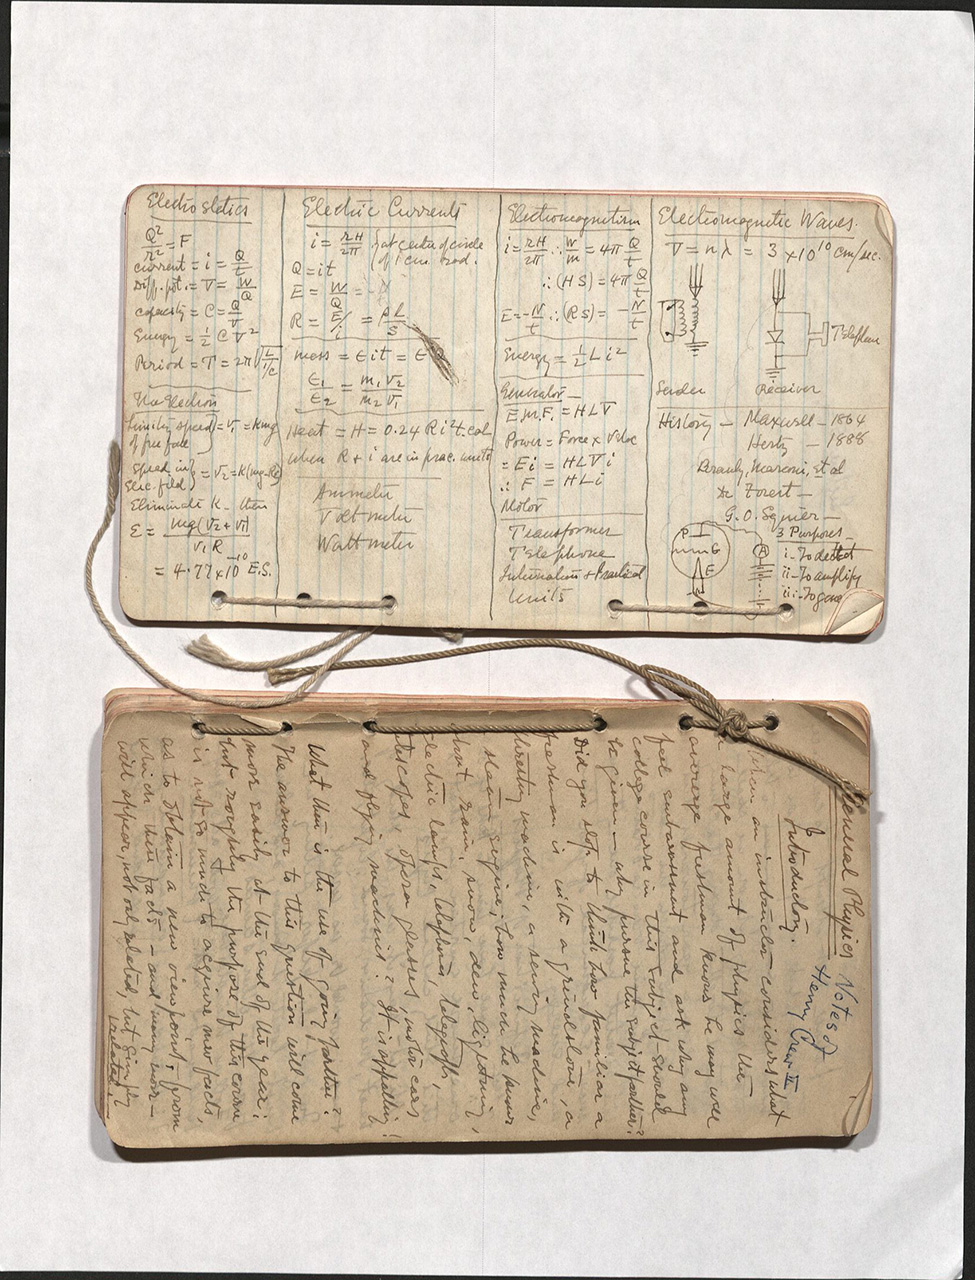 Electrostatics
Q²/r² = F
current = i = Q/t
Diff. pot. = V = W/Q
capacity = C = Q/V
Energy = ½ C V²
Period = T = 2π
The Electron
speed = v₁ = Kmg
of free fall
Speed in
elec. field = v₂ = K(
Eliminate K – then
E = mg(v₂ + v₁) / v₁ R
= 4.77 x 10⁻¹⁰ E.S.
Electric Currents
i = rH/2π at center of circle
of 1 cm. rad.
Q = it
E = W/Q =
R = E/i = ρL/S
Mass = Eit = E Q
E₁/E₂ = m₁v₂/m₂v₁
Heat = H = 0.24 R i² t cal
when R + i are in prac. units
Ammeter
Voltmeter
Wattmeter
Electromagnetism
i = rH/2π ∴ W/m = 4π Q/t
∴ (HS) = 4π Q/t
E = -N/t ∴ (RS) = -N/t
Energy = ½ L i²
Generator –
E.M.F. = HLV
Power = Force x Veloc
= Ei = HLVi
∴ F = HLi
Motor
Transformer
Telephone
International & Practical
Units
Electromagnetic Waves.
V = nλ = 3 x 10¹⁰ cm/sec.
Telephone
Sender Receiver
History – Maxwell – 1864
Hertz – 1888
Branly, Marconi, et al
De Forest –
G. O. Squier –
P
G
E
3 Purposes –
i – To detect
ii – To amplify
iii – To gene
General Physics
Notes of
Henry Crew II
Introductory.
When an instructor considers what
a large amount of physics the
average freshman knows he may well
feel embarassment and ask why any
college course in this subject should
be given – why pursue the subject farther?
Did you stop to think how familiar a
freshman is with a grindstone, a
threshing machine, a sewing machine,
steam engine; how much he knows
about rain, snow, dew, lightning,
electric lamps, telephones, telegraphs,
telescopes, opera glasses, motor cars
and flying machines? It is appalling!
What then is the use of going farther?
The answer to this question will come
more easily at the end of the year;
but roughly the purpose of this course
is not so much to acquire new facts,
as to obtain a new viewpoint from
which these facts – and many more –
will appear, not only related, but simply
related.